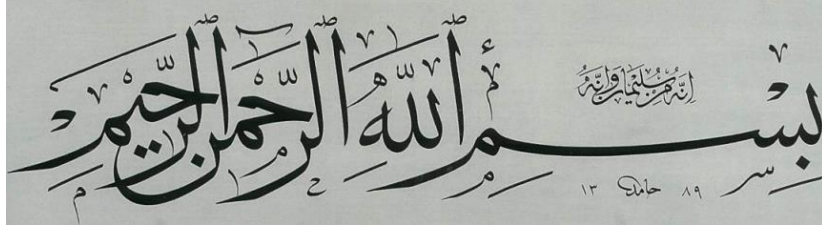 إِنَّهُ مِنْ سُلَيْمَانَ وَإِنَّهُ
بِسْمِ ٱللَّهِ ٱلرَّحْمَٰنِ ٱلرَّحِيمِ
حامد ١٣٨٩